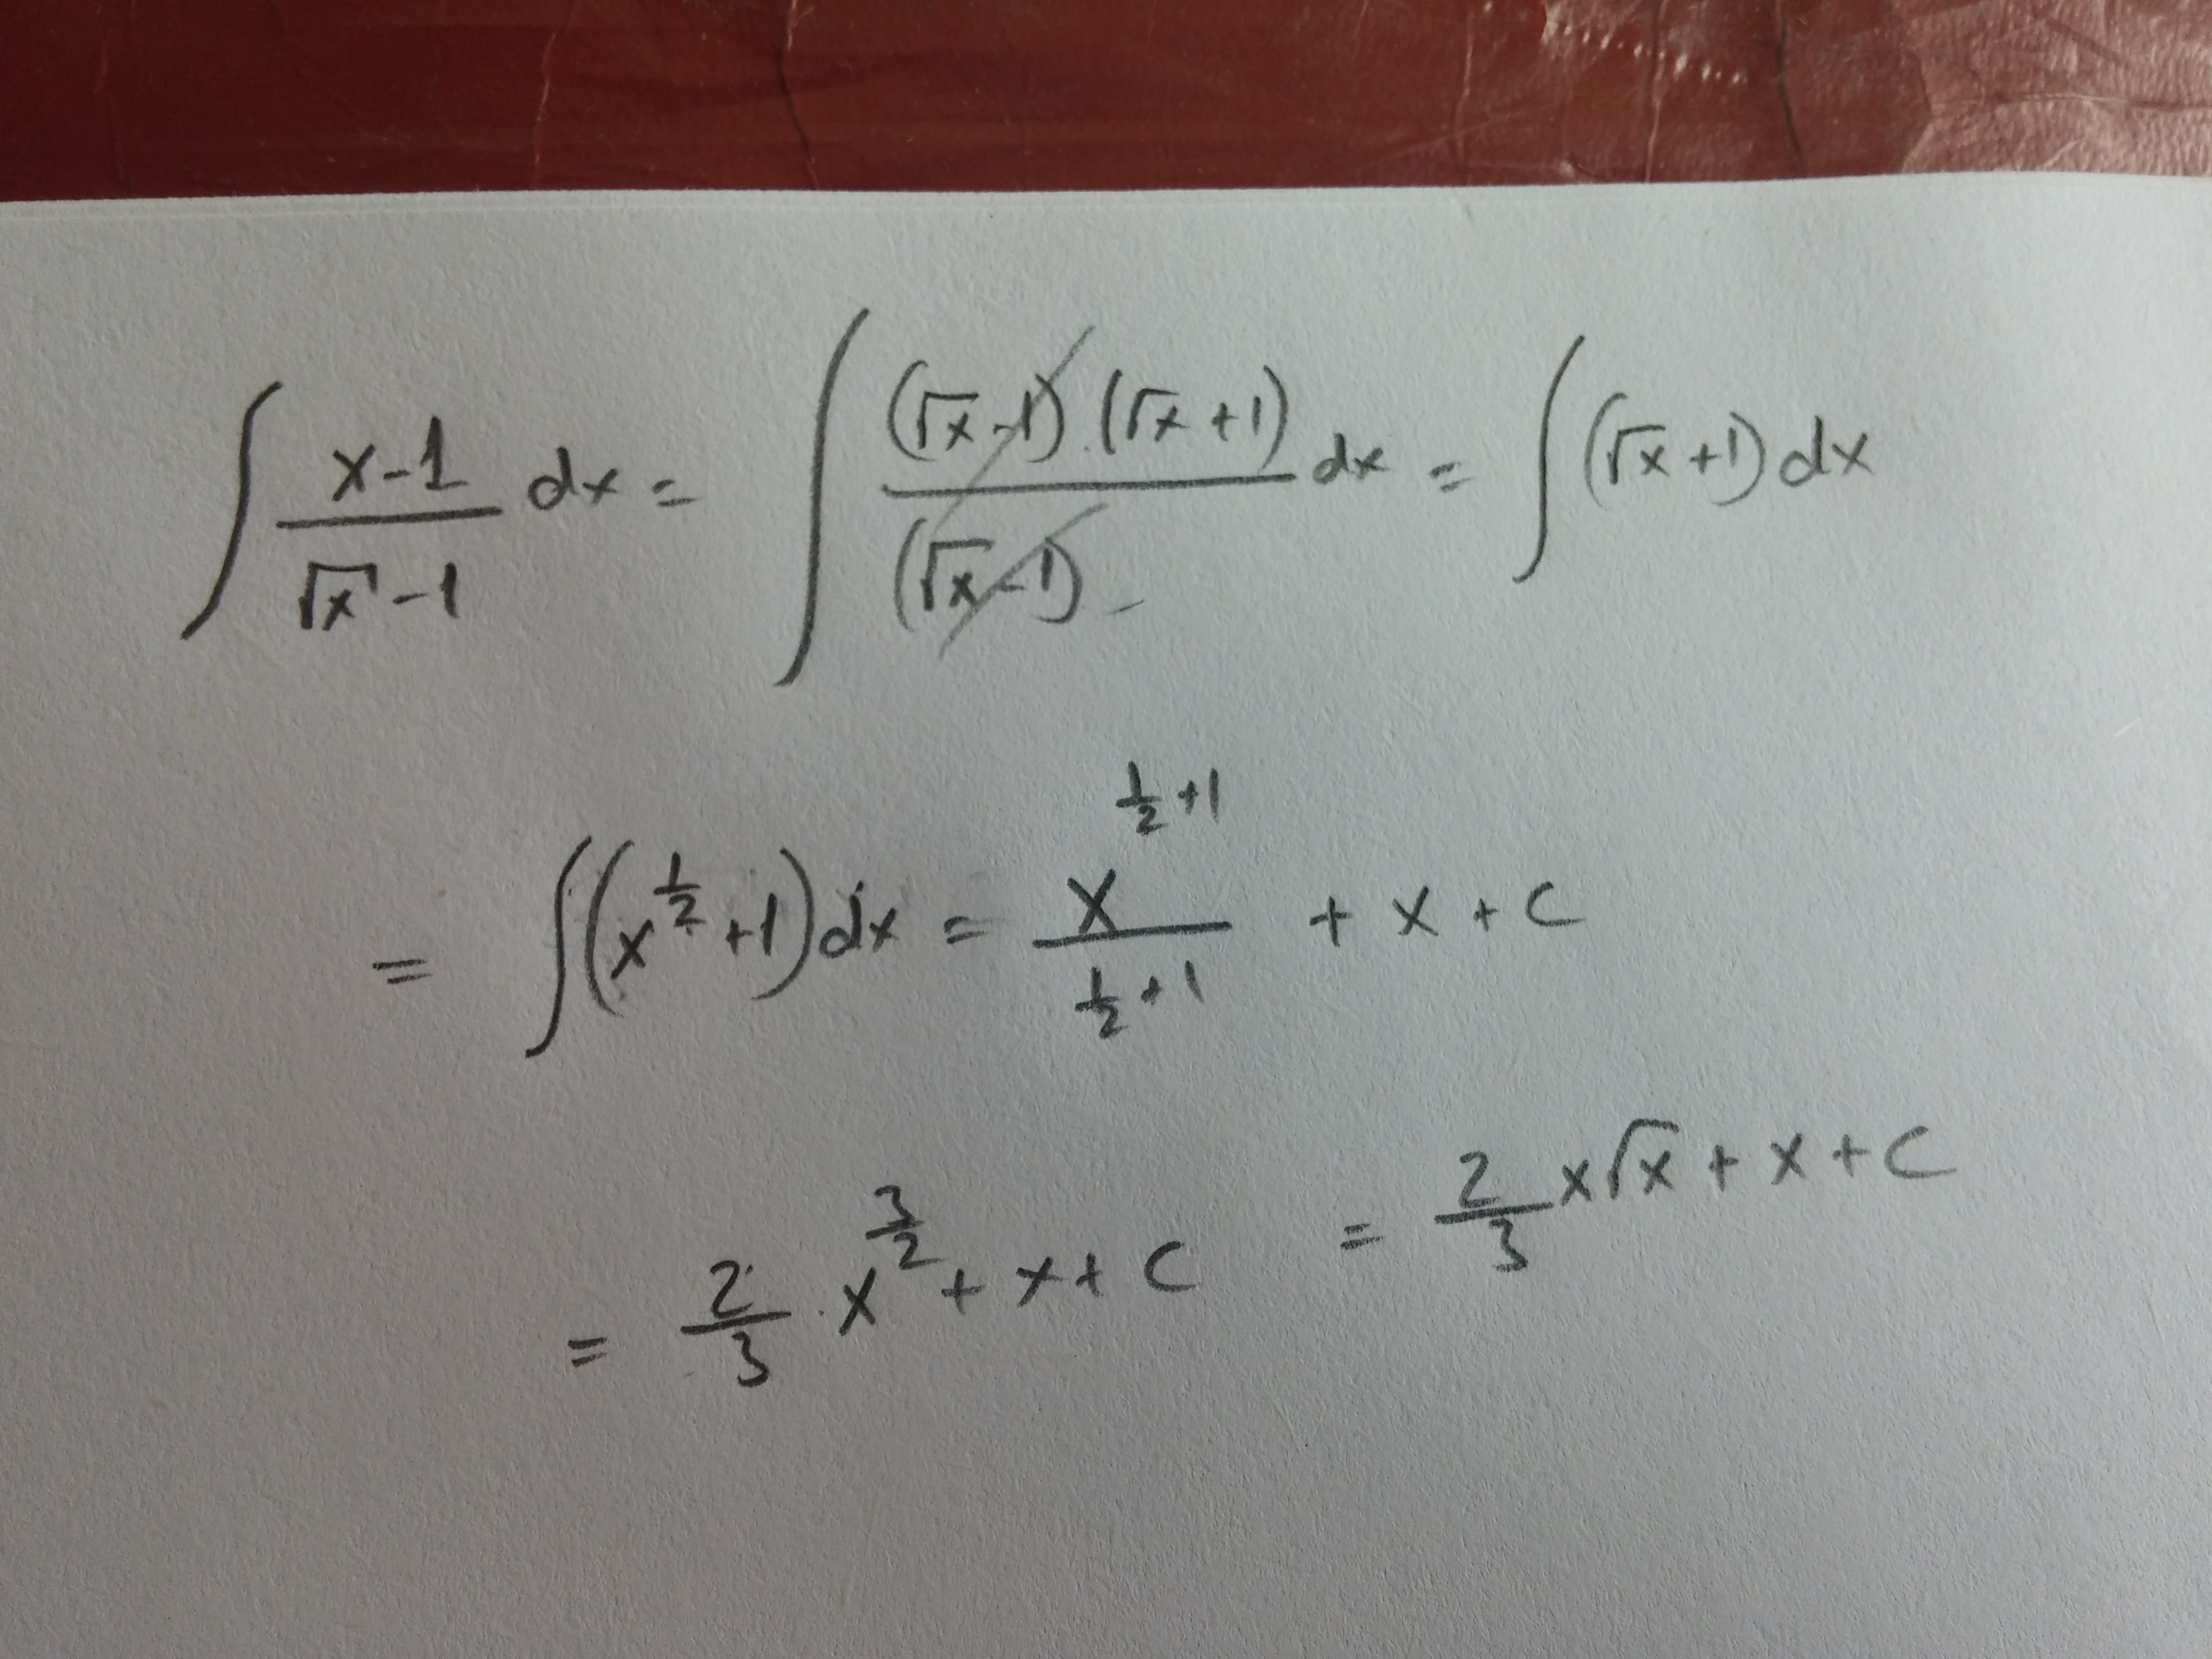 ∫ (x-1)/(√x -1) dx = ∫ ((√x-1)·(√x+1))/(√x-1) dx = ∫(√x+1)dx
= ∫(x^(1/2)+1)dx = x^(1/2+1)/(1/2+1) + x + c
= 2/3 · x^(3/2) + x + c = 2/3 x√x + x + c